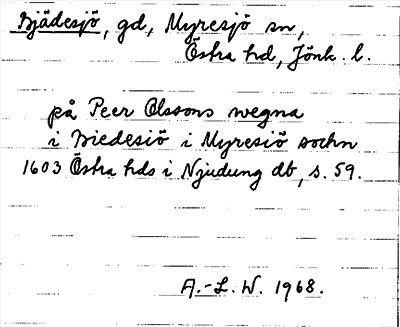 Bjädesjö, gd, Myresjö sn,
Östra hd, Jönk. l.
på Peer Olssons wegna
i Biedesiö i Myresiö sochn
1603 Östra hds i Njudung db, s. 59.
A.-L. W. 1968.